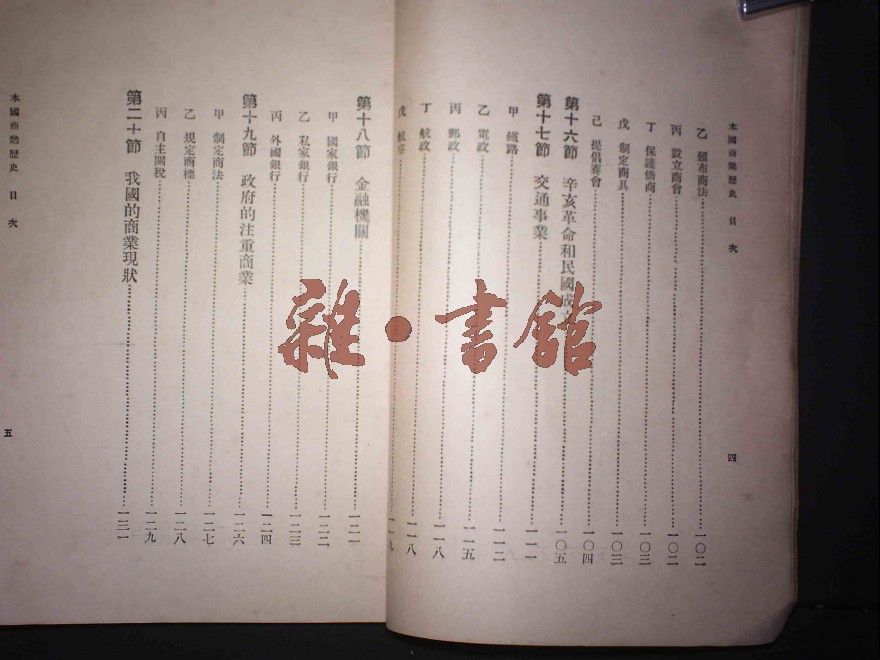 本國商業歷史 目次
四
乙 頒布商法 一〇二
丙 設立商會 一〇二
丁 保護僑商 一〇三
戊 制定商具 一〇三
己 提倡賽會 一〇四
第十六節 辛亥革命和民國成立 一〇五
第十七節 交通事業 一一一
甲 鐵路 一一二
乙 電政 一一五
丙 郵政 一一八
丁 航政 一一八
戊 航空 一一九
第十八節 金融機關 一二一
甲 國家銀行 一二二
乙 私家銀行 一二三
丙 外國銀行 一二四
第十九節 政府的注重商業 一二六
甲 制定商法 一二七
乙 規定商標 一二八
丙 自主關稅 一二九
第二十節 我國的商業現狀 一三一
本國商業歷史 目次
五
雜·書館